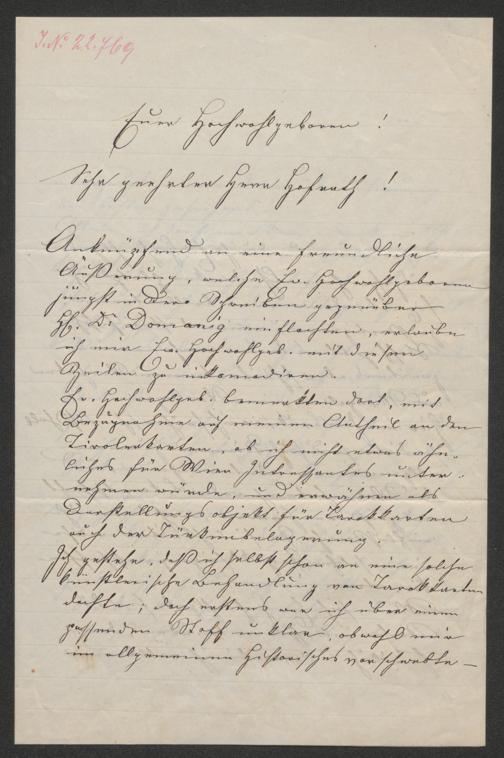 J. N. 22.769
Euer Hochwohlgeboren!
Sehr geehrter Herr Hofrath!
Anknüpfend an eine freundliche
Äußerung, welche Ew. Hochwohlgeboren
jüngst in Dero Schreiben gegenüber
H. Dr Domanig einflochten, erlaube
ich mir Ew. Hochwohlgeb. mit diesen
Zeilen zu inkomodiren.
Ew. Hochwohlgeb. bemerkten dort, mit
Bezugnahme auf meinen Antheil an den
Tirolerkarten, ob ich nicht etwas ähn-
liches für Wien Interessantes unter-
nehmen würde, und erwähnen als
Darstellungsobjekt für Tarokkarten
auch der Türkenbelagerung.
Ich gestehe, daß ich selbst schon an eine solche
künstlerische Behandlung von Tarokkarten
dachte; doch erstens war ich über einen
passenden Stoff unklar, obwohl mir
im allgemeinen Historisches vorschwebte –